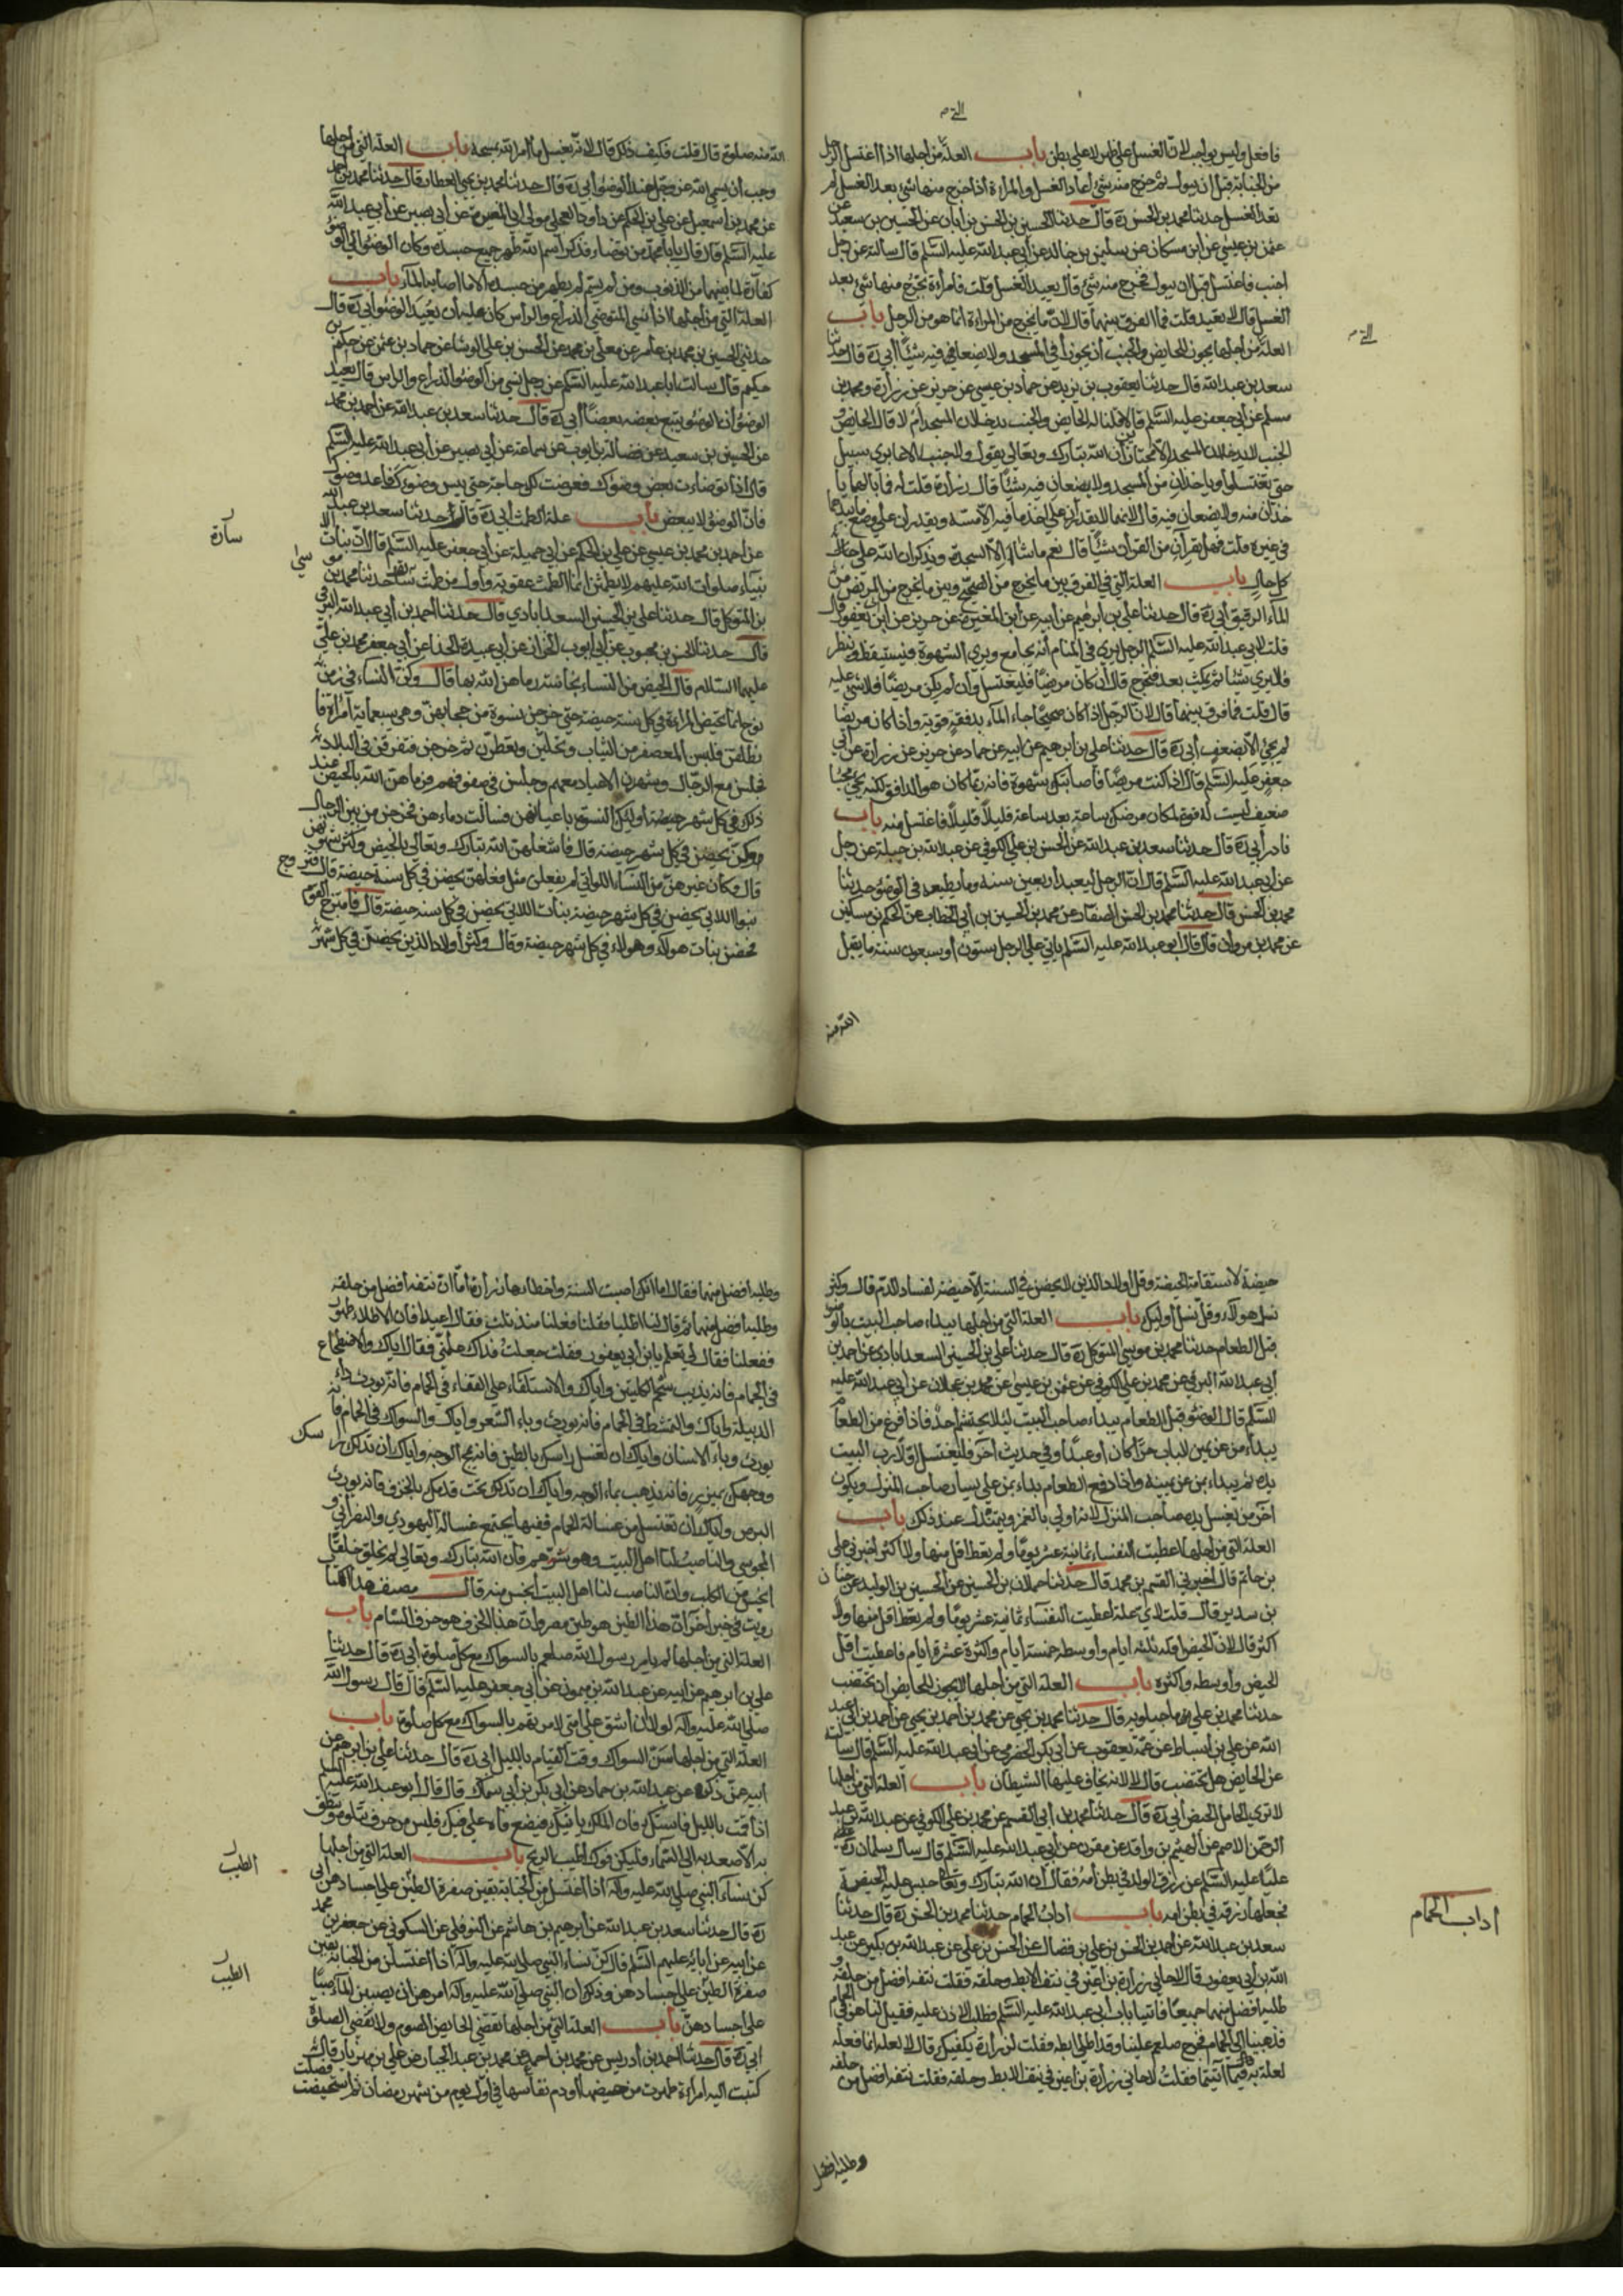 التی م
فافعل وليس بواجب لان الغسل علی ما ظهر لا علی ما بطن باب العلة التی من اجلها اذا اغتسل الرجل
من الجنابة قبل ان يبول ثم خرج منه شئ اعاد الغسل والمراءة اذا خرج منها شئ بعد الغسل لم
تعد الغسل حدثنا محمد بن الحسن ره قال حدثنا الحسين بن الحسن بن ابان عن الحسين بن سعيد عن
عثمن بن عيسی عن ابن مسكان عن سليمن بن خالد عن أبی عبد الله عليه السلم قال سالته عن رجل
اجنب فاغتسل قبل ان يبول فخرج منه شئ قال يعيد الغسل قلت فامراءة تخرج منها شئ بعد
الغسل قال لا تعيد قلت فما الفرق بينهما قال لان ما يخرج من المراءة انما هو من الرجل باب
العلة التی من اجلها يجوز للحايض والجنب أن يجوزا فی المسجد ولا يضعا فيه شيئا أبی ره قال حدثنا
سعد بن عبد الله قال حدثنا يعقوب بن يزيد عن حماد بن عيسی عن حريز عن زرارة ومحمد بن
مسلم عن ابی جعفر عليه السلم قالا قلنا له الحايض والجنب يدخلان المسجد أم لا قال الحايض و
الجنب لا يدخلان المسجد الا مجتازين أن الله تبارك وتعالی يقول ولا جنبا الا عابری سبيل
حتی تغتسلوا وياخذان من المسجد ولا يضعان فيه شيئا قال زرارة قلت له فما بالهما يا
خذان منه ولا يضعان فيه قال لانهما لا يقدران علی اخذ ما فيه الا منه ويقدران علی وضع ما بيدهما
فی غيره قلت فهل يقرآن من القرآن شيئا قال نعم ما شاء الا السجدة ويذكران الله علی
كل حال باب العلة التی فی الفرق بين ما يخرج من الصحيح وبين ما يخرج من المريض من
الماء الرقيق أبی ره قال حدثنا علی بن ابرهيم عن ابيه عن ابن المغيرة عن حريز عن ابن أبی يعفور قال
قلت لابی عبد الله عليه السلم الرجل يری فی المنام أنه يجامع ويری الشهوة فيستيقظ وينظر
فلا يری شيئا ثم يمكث بعد فيخرج قال أن كان مريضا فليغتسل وأن لم يكن مريضا فلا شئ عليه
قال قلت فما فرق بينهما قال لان الرجل اذا كان صحيحا جاء الماء بدفقة قوية وأذا كان مريضا
لم يجئ الا بضعف أبی ره قال حدثنا علی بن أبرهيم عن ابيه عن حماد عن حريز عن زرارة عن أبی
جعفر عليه السلم قال اذا كنت مريضا فأصابتك شهوة فانه ربما كان هو الدافق لكنه يجئ مجيئا
ضعيفا ليست له قوة لمكان مرضك ساعة بعد ساعة قليلا قليلا فاغتسل منه باب
نادر أبی ره قال حدثنا سعد بن عبد الله عن الحسن بن علی الكوفی عن عبد الله بن جبلة عن رجل
عن ابی عبد الله عليه السلم قال ان الرجل ليعبد أربعين سنة وما يطيعه فی الوضو حدثنا
محمد بن الحسن قال حدثنا محمد بن الحسن الصفار عن محمد بن الحسين بن أبی الخطاب عن الحكم بن مسكين
عن محمد بن مروان قال قال أبو عبد الله عليه السلم ياتی علی الرجل ستون أو سبعون سنة ما يقبل
الله منه
التی م
الله منه صلوة قال قلت فكيف ذلك قال لانه يغسل ما أمر الله بمسحه باب العلة التی من أجلها
وجب أن يسمی الله عز وجل عند الوضو أبی ره قال حدثنا محمد بن يحيی العطار قال حدثنا محمد بن أحمد
عن محمد بن اسمعيل عن علی بن الحكم عن داود العجلی مولی ابی المغيرة عن أبی بصير عن أبی عبد الله
عليه السلم قال قال يا با محمد من توضاء فذكر اسم الله طهر جميع جسده وكان الوضو الی الوضو
كفارة لما بينهما من الذنوب ومن لم يسم لم يطهر من جسده الا ما اصابه الماء باب
العلة التی من أجلها اذا نسی المتوضی الذراع والراس كان عليه أن يعيد الوضو أبی ره قال
حدثنی الحسين بن محمد بن عامر عن معلی بن محمد عن الحسن بن علی الوشا عن حماد بن عثمن عن حكم بن
حكيم قال سالت ابا عبد الله عليه السلم عن رجل نسی من الوضو الذراع والراس قال يعيد
الوضو أن الوضو يتبع بعضه بعضا أبی ره قال حدثنا سعد بن عبد الله عن احمد بن محمد
عن الحسين بن سعيد عن فضالة بن ايوب عن سماعة عن ابی بصير عن أبی عبد الله عليه السلم
قال اذا توضاءت بعض وضوك فعرضت لك حاجة حتی يبس وضوءك فاعد وضوك
فان الوضو لا يبعض باب علة الطمث أبی ره قال حدثنا سعد بن عبد الله
عن احمد بن محمد بن عيسی عن علی بن الحكم عن ابی جميلة عن أبی جعفر عليه السلم قال ان بنات الا
نبياء صلوات الله عليهم لا يطمثن انما الطمث عقوبة وأول من طمث سارة حدثنا محمد بن موسی
بن المتوكل قال حدثنا علی بن الحسين السعدابادی قال حدثنا أحمد بن أبی عبد الله البرقی
قال حدثنا الحسن بن محبوب عن أبی ايوب الخزاز عن أبی عبيدة الحذا عن أبی جعفر محمد بن علی
عليهما السلام قال الحيض من النساء نجاسة رماهن الله بها قال وكن النساء فی زمن
نوح انما تحيض المراءة فی كل سنة حيضة حتی خرجن نسوة من حجابهن وهی سبعماية امراءة فا
نطلقن فلبسن المعصفر من الثياب وتحلين وتعطرن ثم خرجن فتفرقن فی البلاد
فجلسن مع الرجال وشهدن الاعياد معهم وجلسن فی صفوفهم فرماهن الله بالحيض عند
ذلك فی كل شهر حيضة أوليك النسوة باعيانهن فسالت دماءهن فخرجن من بين الرجال
وكن يحضن فی كل شهر حيضة قال فاشغلهن الله تبارك وتعالی بالحيض وكسر شهوتهن
قال وكان غيرهن من النساء اللواتی لم يفعلن مثل فعلهن يحضن فی كل سنة حيضة قال فتزوج
بنوا اللاتی يحضن فی كل شهر حيضة بنات اللاتی يحضن فی كل سنة حيضة قال فامتزج القوم
فحضن بنات هولاء وهولاء فی كل شهر حيضة وقال وكثر أولاد الذين يحضن فی كل شهر
سارة
حيضة لاستقامة الحيضة وقل اولاد الذين لا يحضن فی السنة الا حيضة لفساد الدم قال وكثر
نسل هولاء وقل نسل أوليك باب العلة التی من اجلها يبداء صاحب البيت بالوضو
قبل الطعام حدثنا محمد بن موسی المتوكل ره قال حدثنا علی بن الحسين السعدابادی عن احمد بن
أبی عبد الله البرقی عن محمد بن علی الكوفی عن عثمن بن عيسی عن محمد بن عجلان عن ابی عبد الله عليه
السلم قال الوضو قبل الطعام يبداء صاحب البيت لئلا يحتشم أحد فاذا فرغ من الطعام
يبداء من عن يمين الباب حرا كان أو عبدا وفی حديث آخر فليغتسل اولا رب البيت
يده ثم يبداء بمن عن يمينه وأذا رفع الطعام بداء بمن علی يسار صاحب المنزل ويكون
آخر من يغسل يده صاحب المنزل لانه اولی بالغمر ويتمندل عند ذلك باب
العلة التی من اجلها اعطيت النفساء ثمانية عشر يوما ولم يعط اقل منها ولا اكثر اخبرنی علی
بن حاتم قال اخبرنی القسم بن محمد قال حدثنا حمدان بن الحسين عن الحسين بن الوليد عن حنان
بن سدير قال قلت لای علة أعطيت النفساء ثمانية عشر يوما ولم يعط اقل منها ولا
اكثر قال لان الحيض اقله ثلثة ايام وأوسطه خمسة أيام واكثره عشرة ايام فاعطيت اقل
الحيض وأوسطه واكثره باب العلة التی من اجلها لا يجوز للحايض ان تختضب
حدثنا محمد بن علی ماجيلويه قال حدثنا محمد بن يحيی عن محمد بن أحمد بن يحيی عن أحمد بن ابی عبد
الله عن علی بن أسباط عن عمه يعقوب عن أبی بكر الحضرمی عن ابی عبد الله عليه السلم قال سالت
عن الحايض هل تختضب قال لا لانه يخاف عليها الشيطان باب العلة التی من اجلها
لا تری الحامل الحيض أبی ره قال حدثنا محمد بن أبی القسم عن محمد بن علی الكوفی عن عبد الله بن عبد
الرحمن الاصم عن الهيثم بن واقد عن مقرن عن أبی عبد الله عليه السلم قال سال سلمان ره
عليا عليه السلم عن رزق الولد فی بطن أمه فقال أن الله تبارك وتعا حبس عليه الحيضة
فجعلها رزقه فی بطن امه باب أداب الحمام حدثنا محمد بن الحسن ره قال حدثنا
سعد بن عبد الله عن احمد بن الحسن بن علی بن فضال عن الحسن بن علی عن عبد الله بن بكير عن عبد
الله بن أبی يعفور قال لاحانی زرارة بن اعين فی نتف الابط وحلقه فقلت نتفه افضل من حلقه و
طليه افضل منهما جميعا فاتينا باب أبی عبد الله عليه السلم فطلبنا الاذن عليه فقيل لنا هو فی الحمام
فذهبنا الی الحمام فخرج صلعم علينا وقد اطلی ابطه فقلت لزرارة يكفيك قال لا لعله انما فعله
لعلة به فيما اتيتما فقلت لاحانی زرارة بن اعين فی نتف الابط وحلقه فقلت نتفه افضل من حلقه
وطليه افضل
أداب الحمام
وطليه افضل منهما فقال اما انك اصبت السنة واخطاءها زرارة أما ان نتفه افضل من حلقه
وطليه أفضل منهما ثم قال لنا اطليا فقلنا فعلنا منذ ثلث فقال اعيدا فان الاطلاء طهور
ففعلنا فقال لی تعلم يا بن أبی يعفور فقلت جعلت فداك علمنی فقال اياك والاضطجاع
فی الحمام فانه يذيب شحم الكليتين واياك والاستلقاء علی القفاء فی الحمام فانه يورث داء
الدبيلة واياك والتمشط فی الحمام فانه يورث وباء الشعر واياك والسواك فی الحمام فانه
يورث وباء الاسنان واياك ان تغسل راسك بالطين فانه يسمج الوجه واياك أن تدلك راسك
ووجهك بميزر فانه يذهب بماء الوجه واياك ان تدلك تحت قدمك بالخزف فانه يورث
البرص واياك ان تغتسل من غسالة الحمام ففيها يجتمع غسالة اليهودی والنصرانی و
المجوسی والناصب لنا اهل البيت وهو شرهم فان الله تبارك وتعالی لم يخلق خلقا
أنجس من الكلب وان الناصب لنا اهل البيت أنجس منه قال مصنف هذا الكتاب
رويت فی خبر اخر ان هذا الطين هو طين مصر وان هذا الخزف هو خزف الشام باب
العلة التی من اجلها لم يامر رسول الله صلعم بالسواك مع كل صلوة أبی ره قال حدثنا
علی بن ابرهيم عن أبيه عن عبد الله بن ميمون عن أبی جعفر عليه السلم قال قال رسول الله
صلی الله عليه وآله لولا ان أشق علی امتی لامرتهم بالسواك مع كل صلوة باب
العلة التی من اجلها سن السواك وقت القيام بالليل أبی ره قال حدثنا علی بن ابرهيم عن
ابيه عمن ذكره عن عبد الله بن حماد عن ابی بكر بن أبی سماك قال قال أبو عبد الله عليه السلم
اذا قمت بالليل فاستك فان الملك ياتيك فيضع فاه علی فيك فليس من حرف تتلوه وتنطق
به الا صعد به الی السماء فليكن فوك طيب الريح باب العلة التی من أجلها
كن نساء النبی صلی الله عليه وآله اذا أغتسلن من الجنابة يبقين صفرة الطيب علی اجسادهن ابی
ره قال حدثنا سعد بن عبد الله عن أبرهيم بن هاشم عن النوفلی عن السكونی عن جعفر بن محمد
عن ابيه عن ابايه عليهم السلم قال كن نساء النبی صلی الله عليه وآله اذا اغتسلن من الجنابة يبقين
صفرة الطيب علی اجسادهن وذلك ان النبی صلی الله عليه وآله امرهن ان يصببن الماء صبا
علی اجسادهن باب العلة التی من اجلها تقضی الحايض الصوم ولا تقضی الصلوة
ابی ره قال حدثنا احمد بن أدريس عن محمد بن احمد عن محمد بن عبد الجبار عن علی بن مهزيار قال
كتبت اليه امراءة طهرت من حيضها أو دم نفاسها فی اول يوم من شهر رمضان ثم استحيضت فصلت
الطيب
الطيب